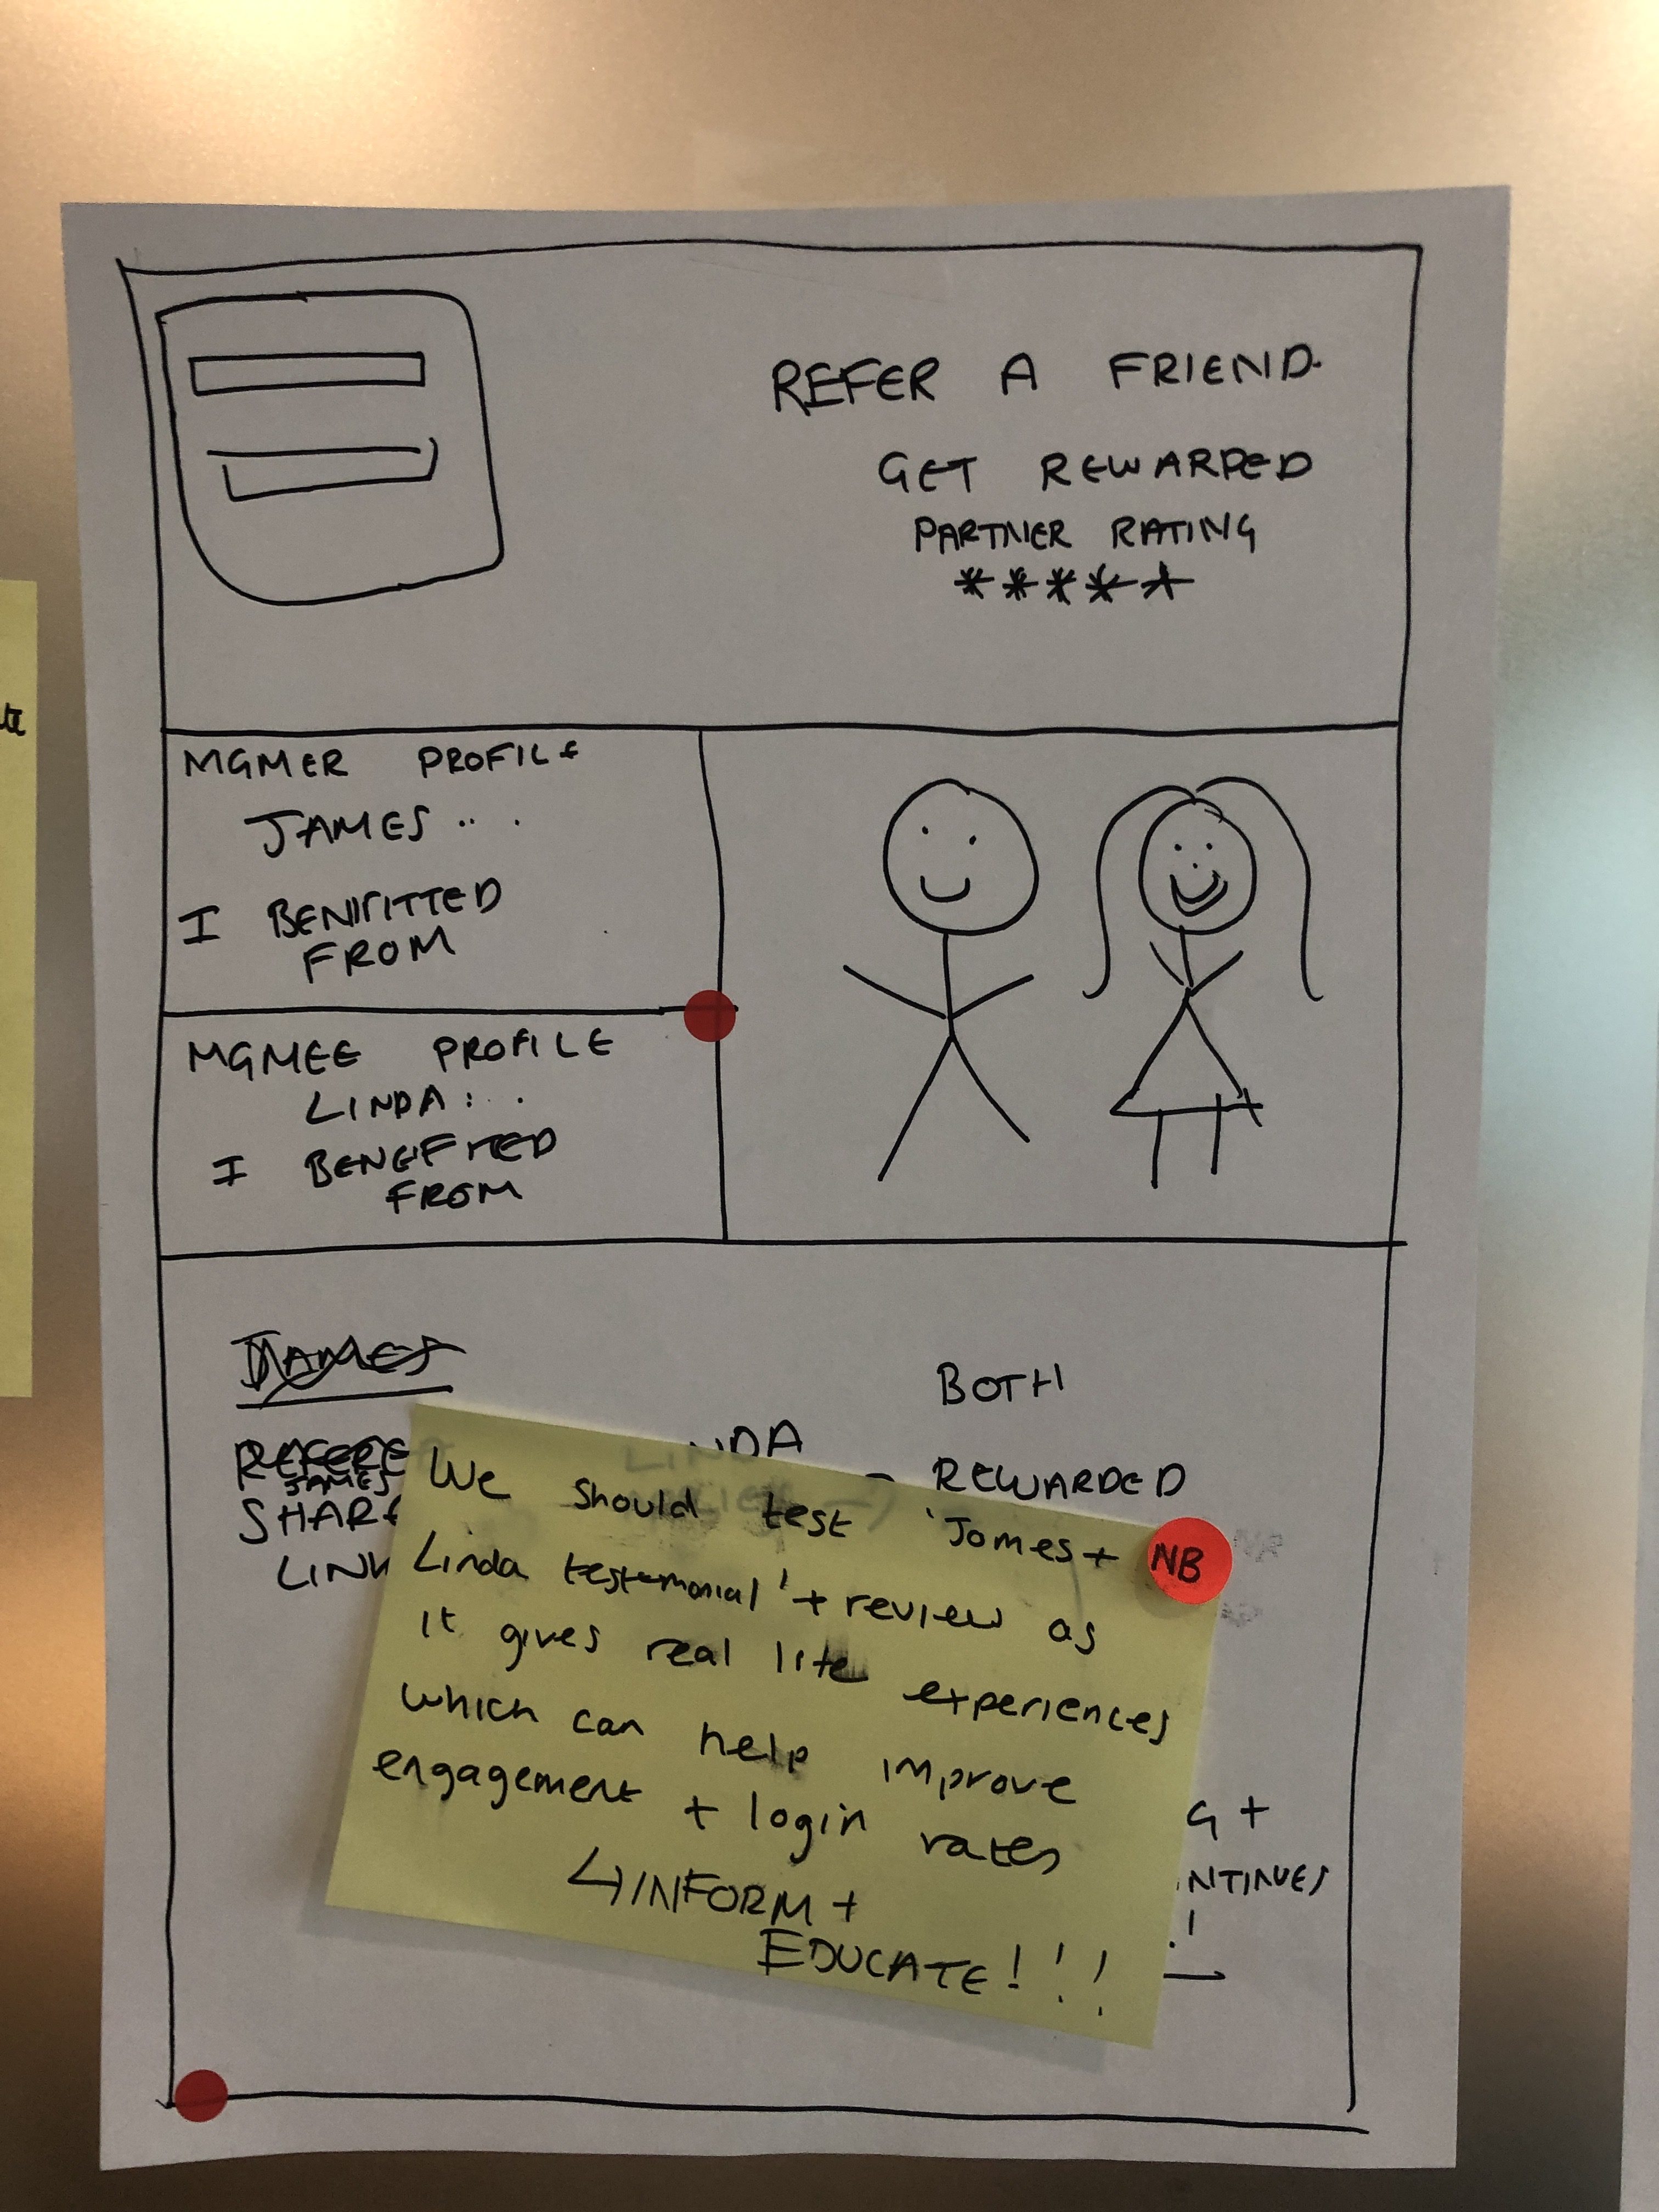 REFER A FRIEND.
GET REWARDED
PARTNER RATING
*****
MGMER PROFILE
JAMES ...
I BENIFITTED
FROM
MGMEE PROFILE
LINDA: ..
I BENEFITED
FROM
JAMES
BOTH
LINDA
REWARDED
JAMES
SHARE
LINK
We should test 'James +
NB
Linda testimonial' + review as
it gives real life experiences
which can help improve
engagement + login rates
↳ INFORM +
EDUCATE!!!
G +
NTINUES